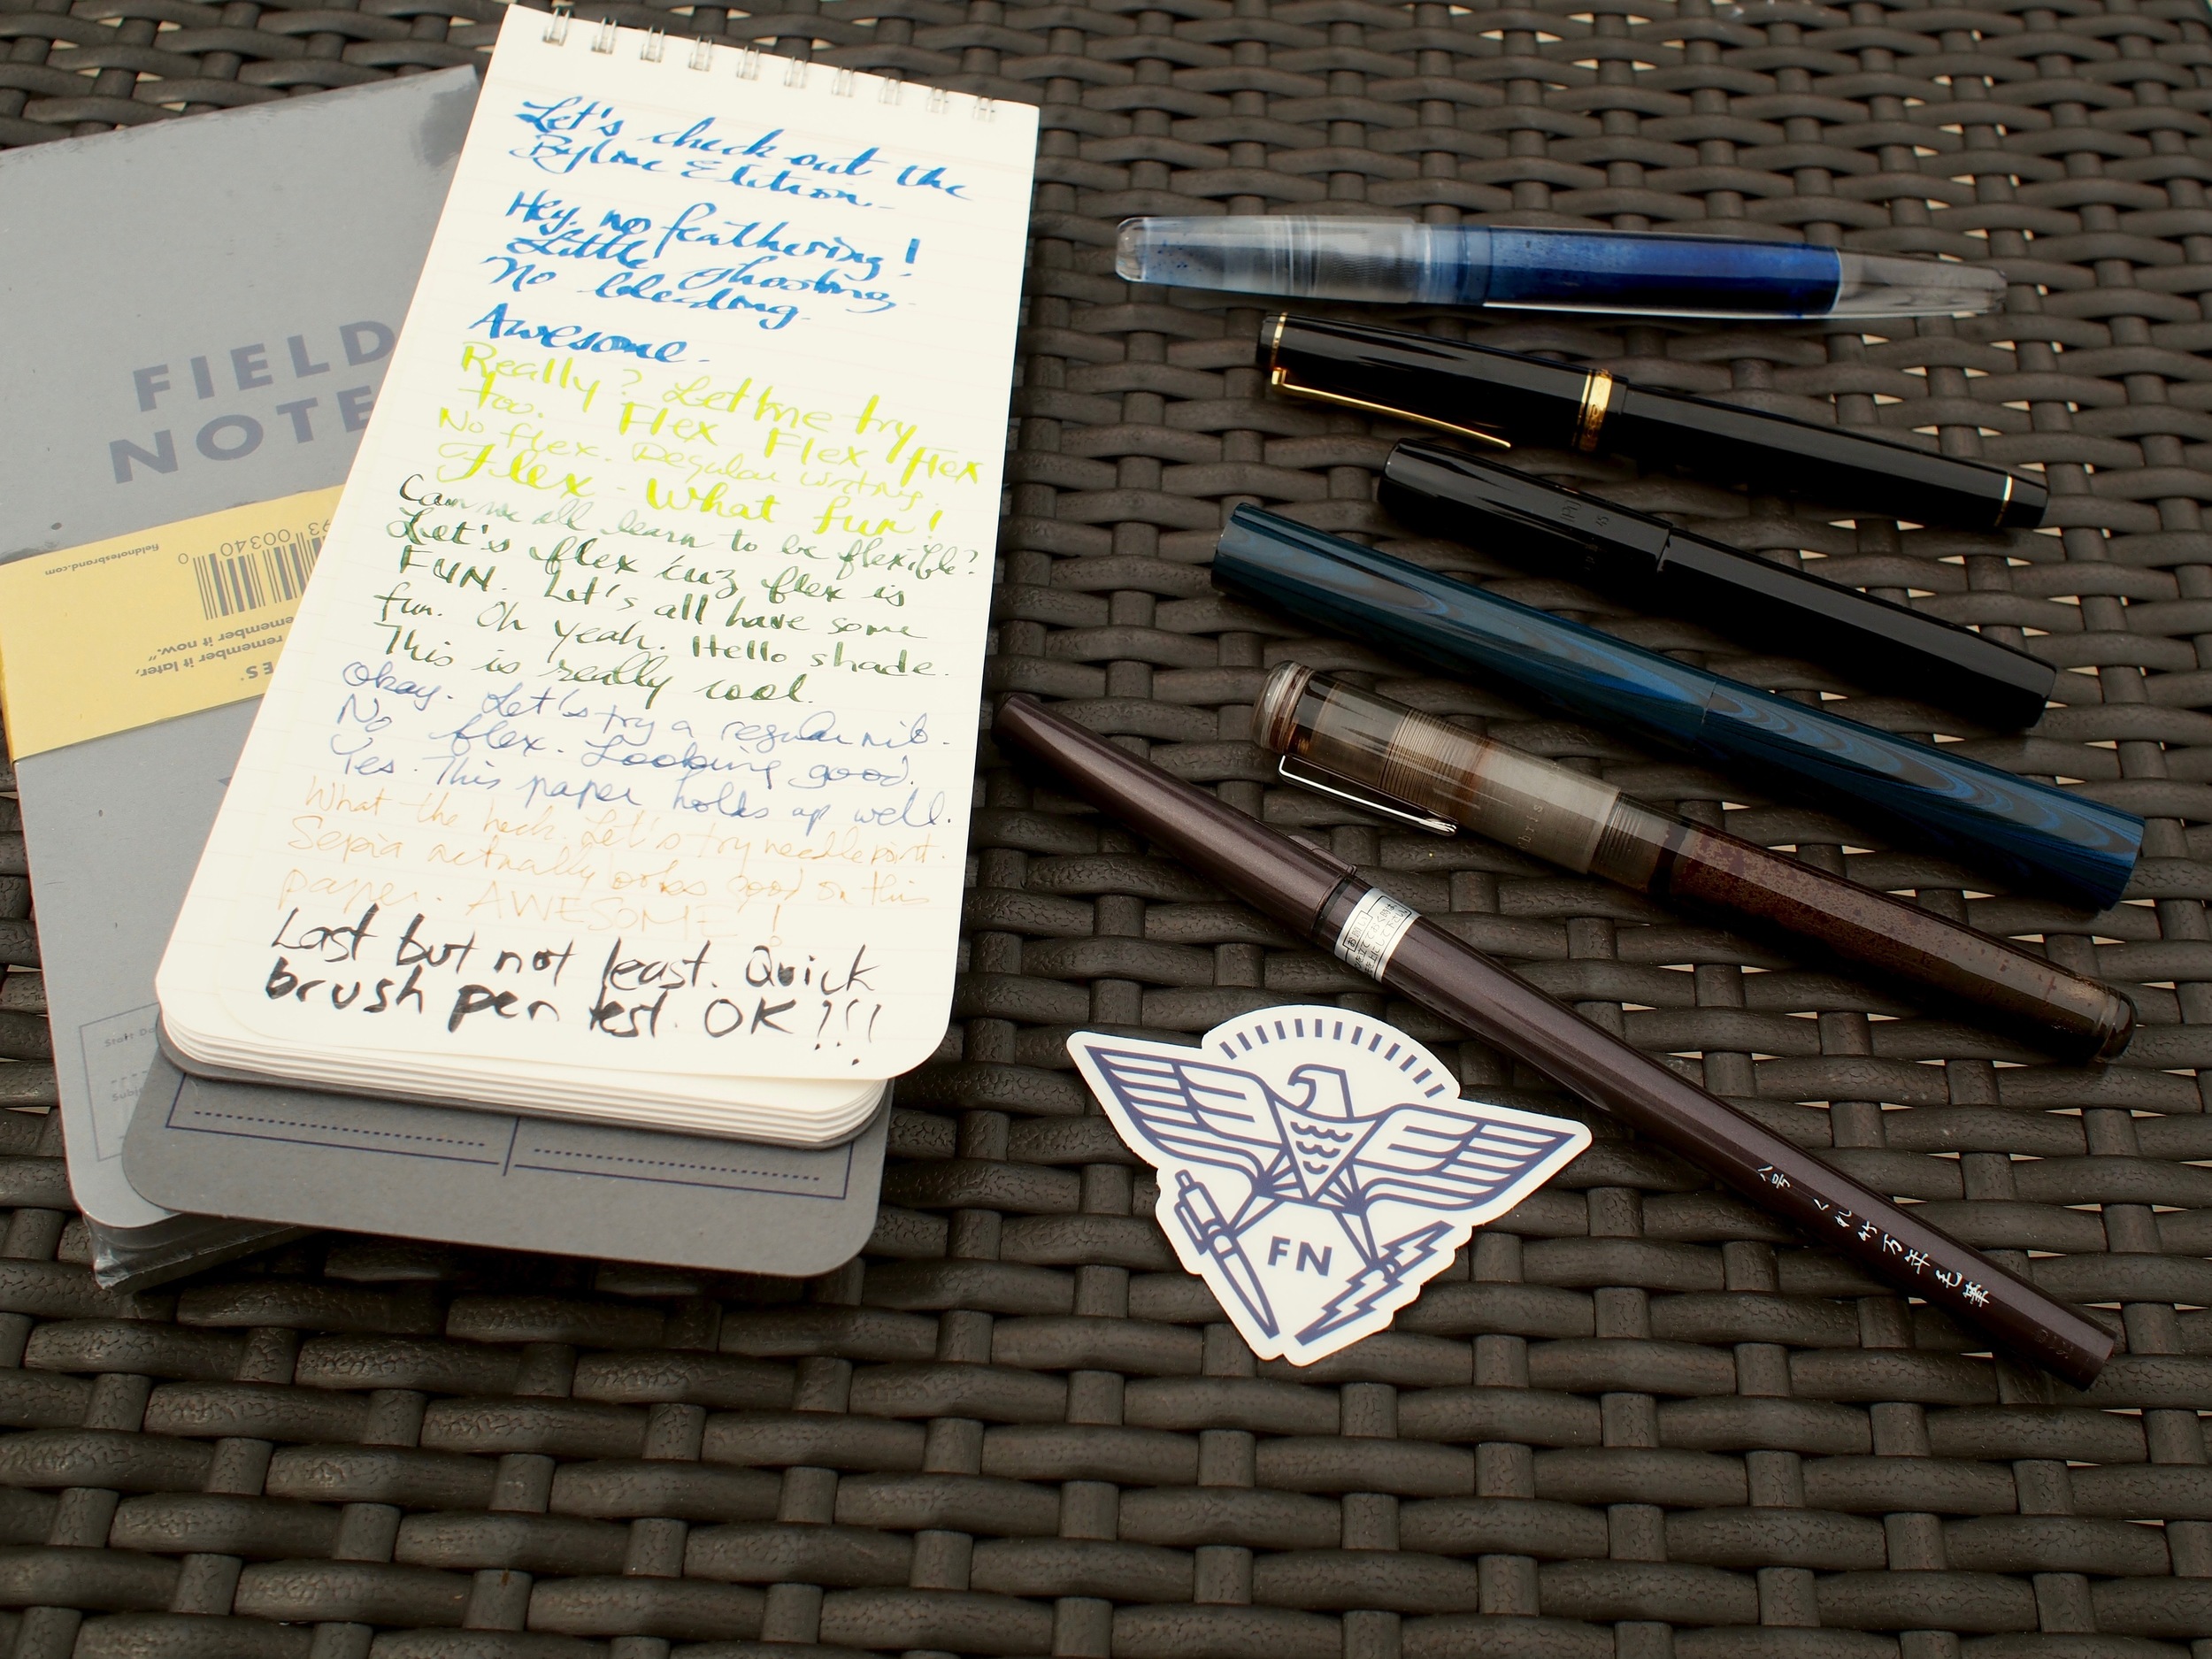 Let's check out the
Byline Edition.
Hey, no feathering!
Little ghosting.
No bleeding.
Awesome.
Really? Let me try
too. Flex Flex flex
No flex. Regular writing.
Flex - What fun!
Can we all learn to be flexible?
Let's flex 'cuz flex is
FUN. Let's all have some
fun. Oh yeah. Hello shade.
This is really cool.
Okay. Let's try a regular nib.
No flex. Looking good.
Yes. This paper holds up well.
What the heck. Let's try needlepoint.
Sepia actually looks good on this
paper. AWESOME!
Last but not least. Quick
brush pen test. OK!!!
FIELD
NOTE
00340 0
fieldnotesbrand.com
remember it later,
remember it now."
ES
FN
くれ竹万年毛筆